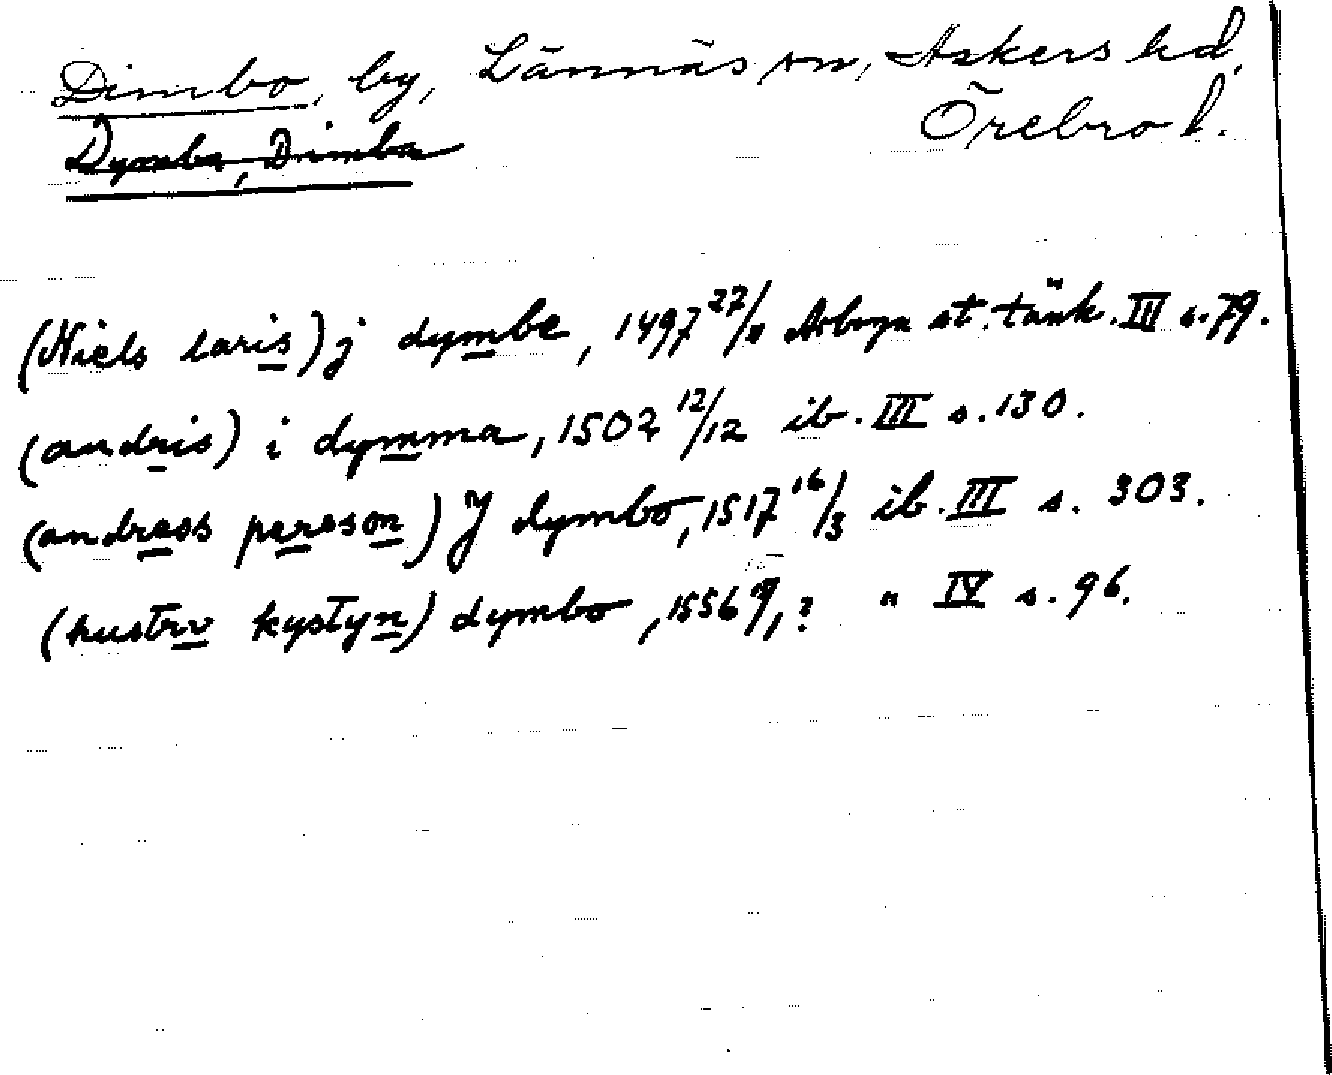 Dimbo, by, Lännäs sn, Askers hd,
Örebro l.
Dymba, Dimba
(Niels laris) j dymbe, 1497 27/11 Arboga st. tänk. III s. 79.
(andris) i dymma, 1502 12/12 ib. III s. 130.
(andress person) J dymbo, 1517 16/3 ib. III s. 303.
(hustrv kystyn) dymbo, 1556 ? " IV s. 96.